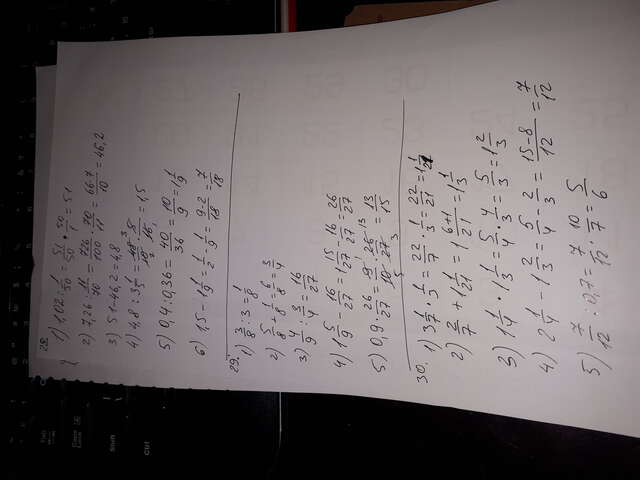 28.
1) 1,02 : 1/50 = 51/50 • 50/1 = 51
2) 7,26 : 11/70 = 726/100 • 70/11 = 66·7/10 = 46,2
3) 51-46,2 = 4,8
4) 4,8 : 3 1/5 = 48/10 • 5/16 = 1,5
5) 0,4 : 0,36 = 40/36 = 10/9 = 1 1/9
6) 1,5 - 1 1/9 = 1/2 - 1/9 = 9-2/18 = 7/18
29.
1) 3/8 : 3 = 1/8
2) 5/8 + 1/8 = 6/8 = 3/4
3) 4/9 : 3/4 = 16/27
4) 1 5/9 - 16/27 = 1 15/27 - 16/27 = 26/27
5) 0,9 • 26/27 = 9/10 • 26/27 = 13/15
30.
1) 3 1/7 • 1/3 = 22/7 • 1/3 = 22/21 = 1 1/21
2) 2/7 + 1 1/21 = 1 6+1/21 = 1 1/3
3) 1 1/4 • 1 1/3 = 5/4 • 4/3 = 5/3 = 1 2/3
4) 2 1/4 - 1 2/3 = 5/4 - 2/3 = 15-8/12 = 7/12
5) 7/12 : 0,7 = 7/12 • 10/7 = 5/6